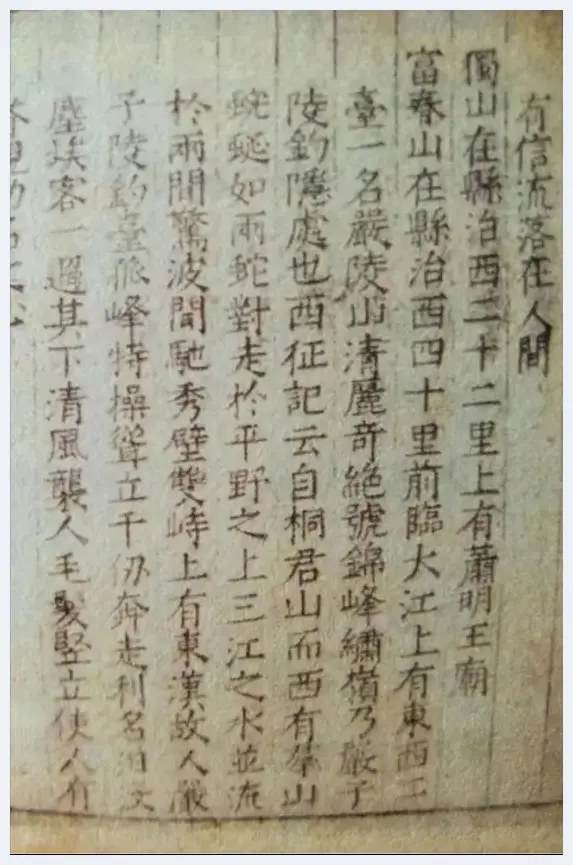 有信流落在人間
獨山在縣治西二十二里上有蕭明王廟
富春山在縣治西四十里前臨大江上有東西二
臺一名嚴陵山清麗奇絕號錦峰繡嶺乃嚴子
陵釣隱處也西征記云自桐君山而西有羣山
蜿蜒如兩蛇對走於平野之上三江之水並流
於兩間驚波間馳秀壁雙峙上有東漢故人嚴
子陵釣臺孤峰特操聳立千仞奔走利名汩沒
塵埃客一過其下清風襲人毛髮豎立使人有